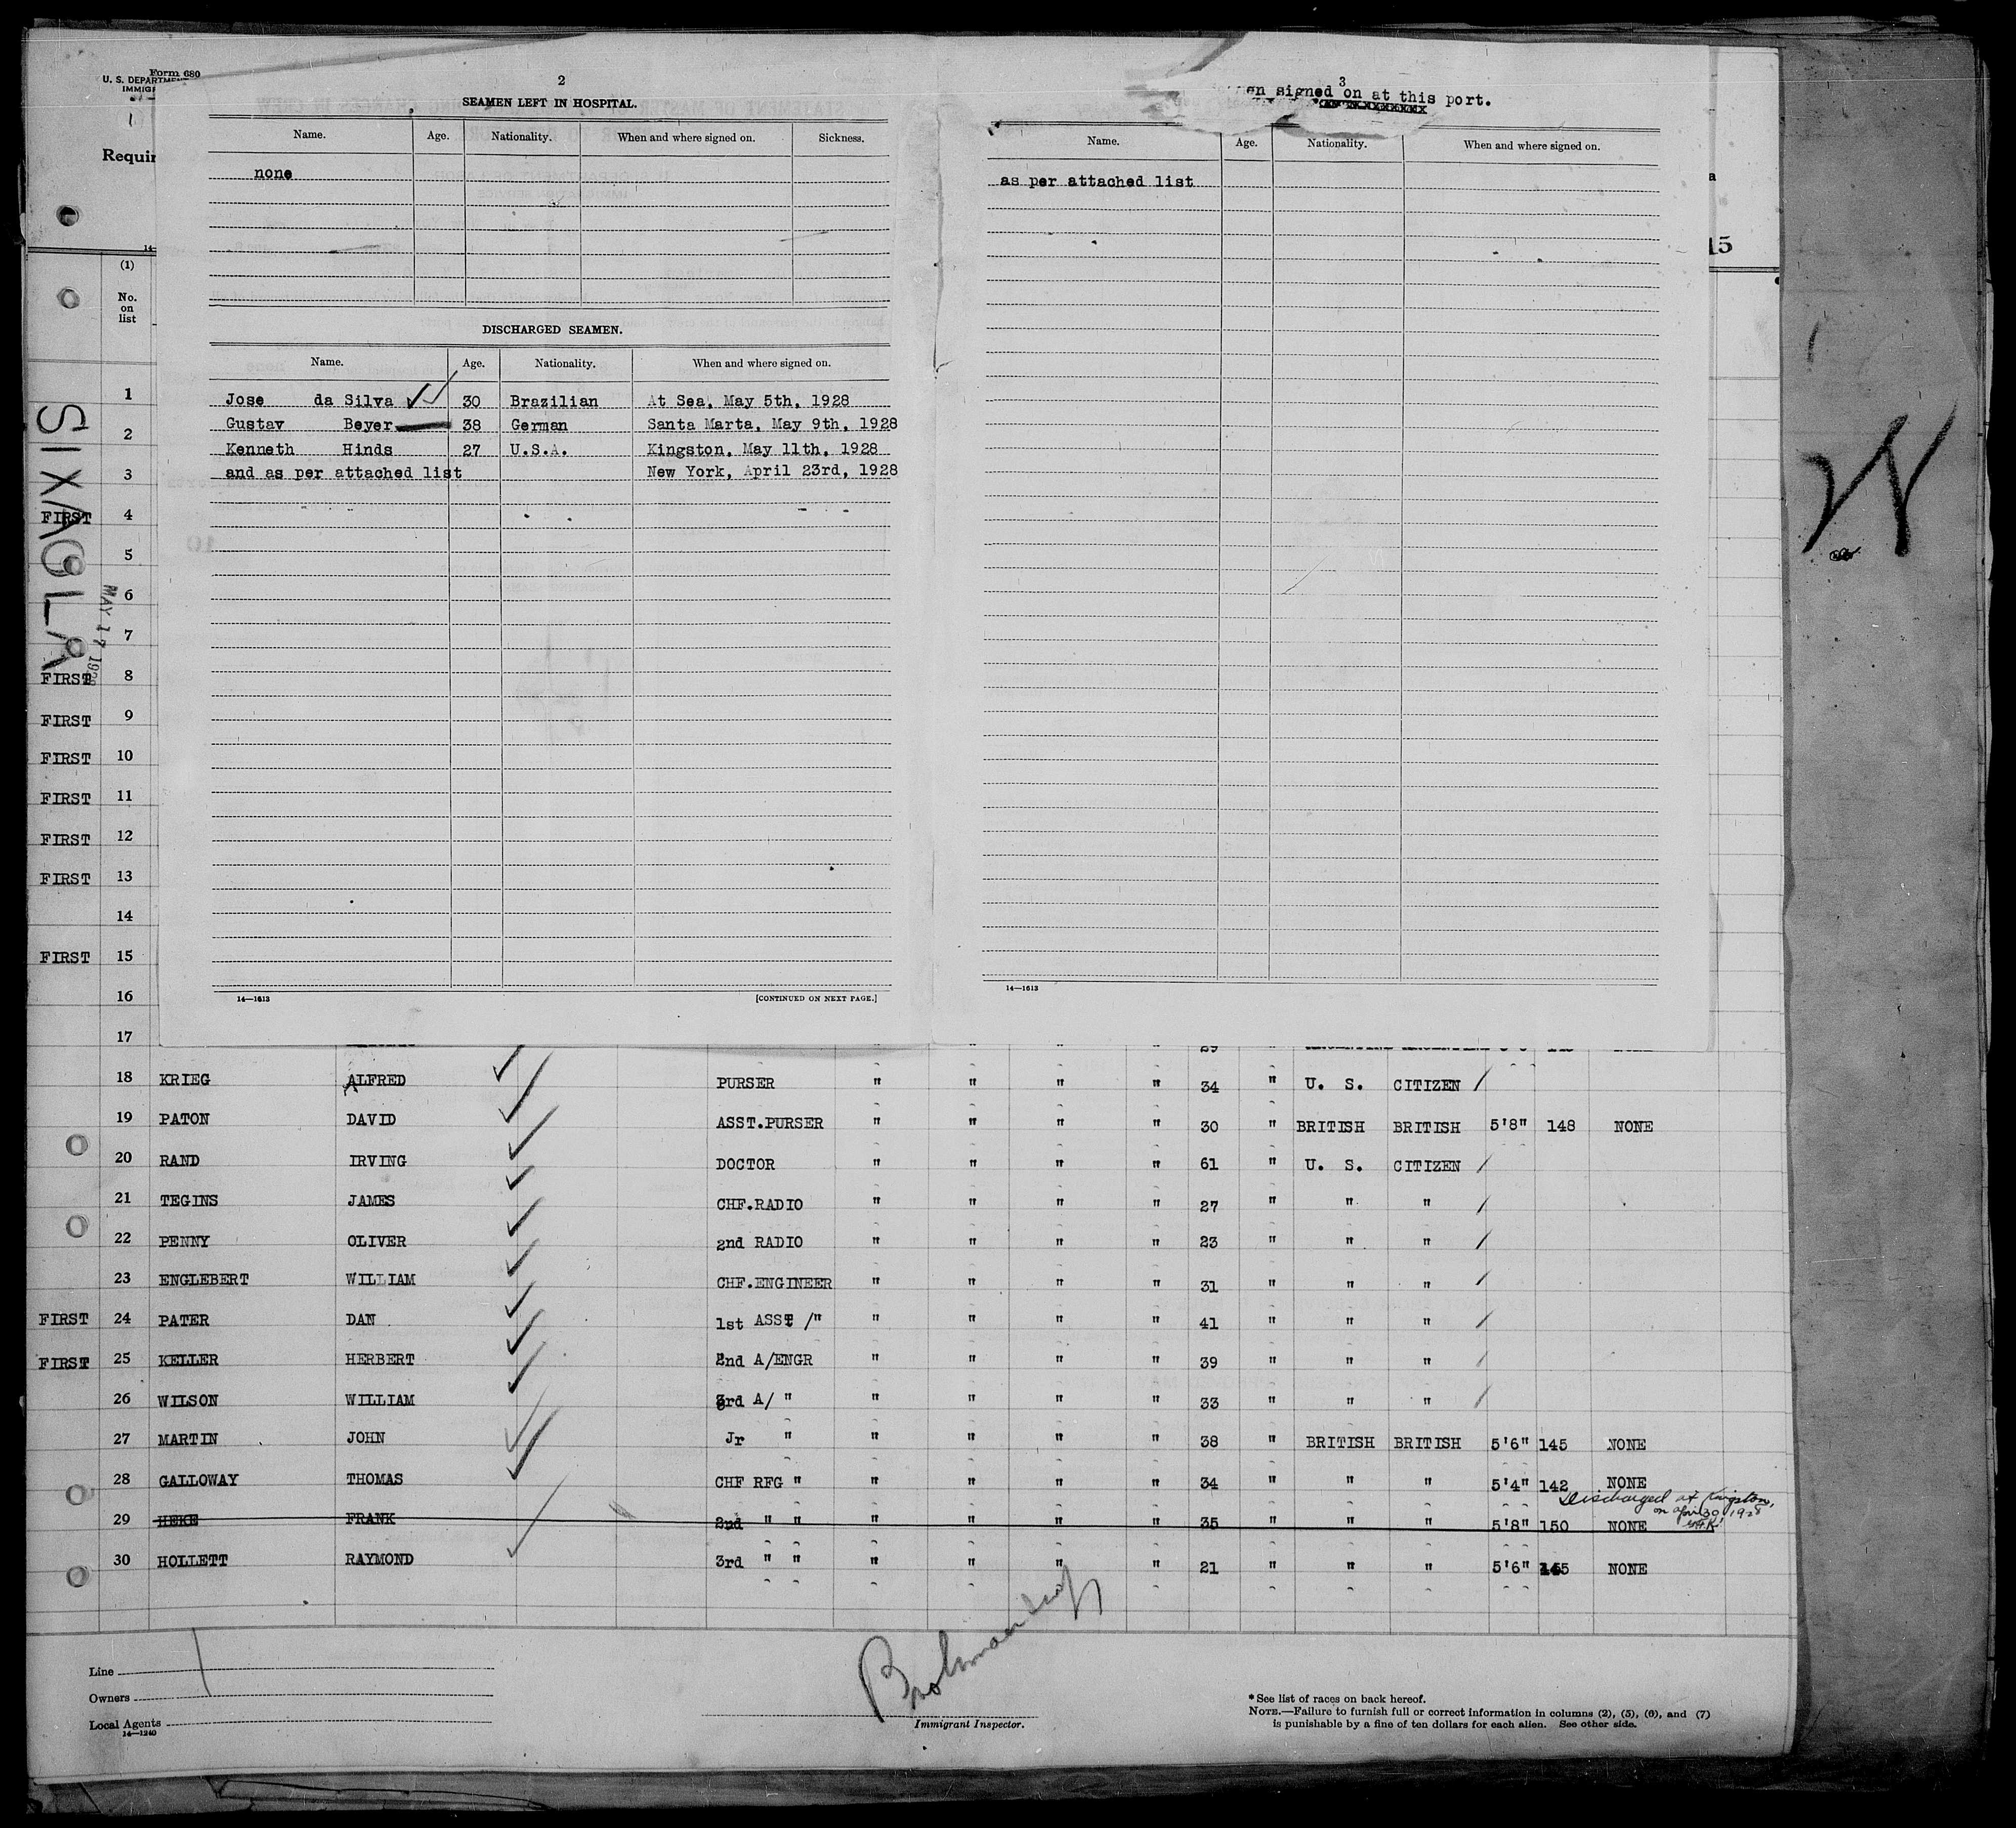 Form 680
U. S. DEPARTMENT
IMMIG
Requir
(1)
No.
on
list
2
SEAMEN LEFT IN HOSPITAL.
Name. Age. Nationality. When and where signed on. Sickness.
none
DISCHARGED SEAMEN.
Name. Age. Nationality. When and where signed on.
Jose da Silva 30 Brazilian At Sea, May 5th, 1928
Gustav Beyer 38 German Santa Marta, May 9th, 1928
Kenneth Hinds 27 U.S.A. Kingston, May 11th, 1928
and as per attached list New York, April 23rd, 1928
14—1613 [CONTINUED ON NEXT PAGE.]
3
en signed on at this port.
Name. Age. Nationality. When and where signed on.
as per attached list
14—1613
a
15
W
SIXAOLA
MAY 17
1
2
3
FIRST 4
5
6
7
FIRST 8
FIRST 9
FIRST 10
FIRST 11
FIRST 12
FIRST 13
14
FIRST 15
16
17 29
18 KRIEG ALFRED PURSER " " " " 34 " U. S. CITIZEN
19 PATON DAVID ASST.PURSER " " " " 30 " BRITISH BRITISH 5'8" 148 NONE
20 RAND IRVING DOCTOR " " " " 61 " U. S. CITIZEN
21 TEGINS JAMES CHF.RADIO " " " " 27 " " "
22 PENNY OLIVER 2nd RADIO " " " " 23 " " "
23 ENGLEBERT WILLIAM CHF.ENGINEER " " " " 31 " " "
FIRST 24 PATER DAN 1st ASST /" " " " " 41 " " "
FIRST 25 KELLER HERBERT 2nd A/ENGR " " " " 39 " " "
26 WILSON WILLIAM 3rd A/ " " " " " 33 " " "
27 MARTIN JOHN Jr " " " " " 38 " BRITISH BRITISH 5'6" 145 NONE
28 GALLOWAY THOMAS CHF RFG " " " " " 34 " " " 5'4" 142 NONE
Discharged at Kingston,
on April 30 1928
29 HEKE FRANK 2nd " " " " " " 35 " " " 5'8" 150 NONE
30 HOLLETT RAYMOND 3rd " " " " " " 21 " " " 5'6" 145 NONE
Line
Owners
Local Agents
14—1240
Immigrant Inspector.
* See list of races on back hereof.
NOTE.—Failure to furnish full or correct information in columns (2), (5), (6), and (7)
is punishable by a fine of ten dollars for each alien. See other side.